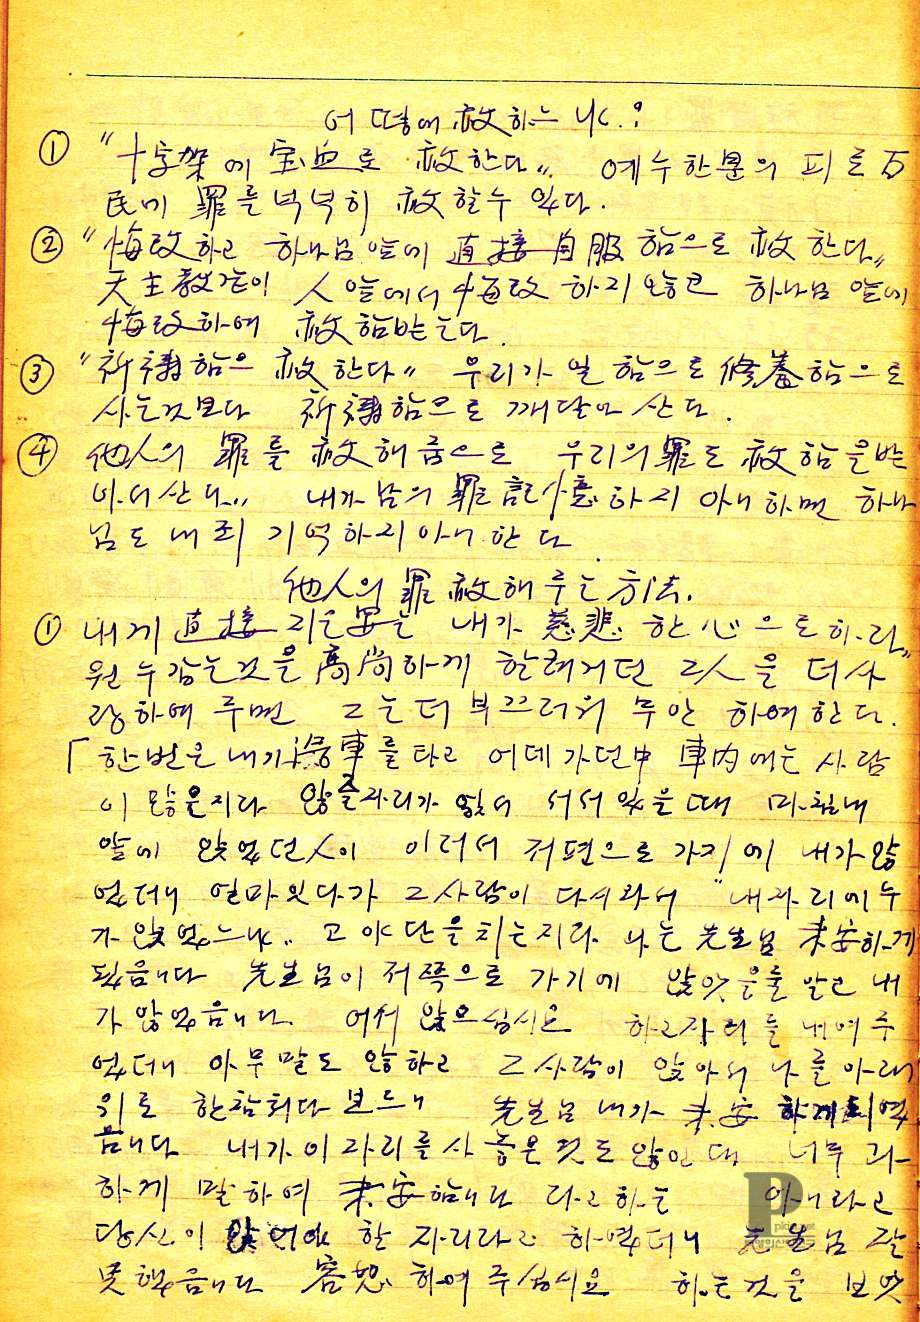 어떻에 赦하느냐.?
① "十字架에 宝血로 赦한다" 예수한분의 피로 万
民에 罪를 넉넉히 赦할수 있다.
② "悔改하고 하나님 앞에 直接 自服함으로 赦한다"
天主敎같이 人앞에서 悔改하지않고 하나님 앞에
悔改하여 赦함받는다.
③ "祈禱함으 赦한다" 우리가 일함으로 修養함으로
사는것보다 祈禱함으로 깨달아 산다.
④ 他人의 罪를 赦해줌으로 우리의 罪도 赦함을받
아서 산다" 내가 남의 罪 記憶하지 아니하면 하나
님도 내죄 기억하지아니 한다.
他人의 罪 赦해주는 方法.
① 내게 直接 지은罪는 내가 慈悲한心으로하라"
원수갚는것을 高尚하게 할려거던 그人을 더사
랑하여 주면 그는더 부끄러워 무안하여한다.
「한번은 내가 汽車를타고 어데가던中 車內에는 사람
이 많은지라 앉을자리가 없어 서서있을때 마침내
앞에 앉었던人이 이러서 저편으로 가기에 내가앉
었더니 얼마있다가 그사람이 다시와서 "내자리에누
가 앉었느냐" 고 야단을치는지라 나는 先生님 未安하게
되었읍니다 先生님이 저쪽으로 가기에 앉었은줄알고 내
가 앉었읍니다. 어서 앉으십시요 하고자리를 내여주
었더니 아무말도 않하고 그사람이 앉아서 나를 아래
위로 한참처다 보드니 先生님 내가 未安하게되였
읍니다 내가이 자리를 사 놓은것도 않인대 너무 과
하게 말하여 未安합니다 다고하는 아니라고
당신이 앉어야 할 자리라고 하였더니 先生님 잘
못했읍니다 容恕하여 주십시요 하는것을 보앗